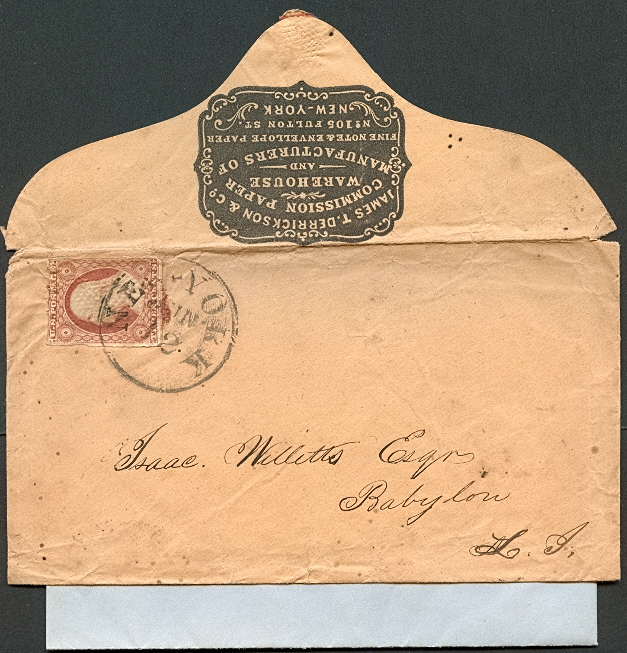 JAMES T. DERRICKSON & Co
COMMISSION PAPER
WAREHOUSE
AND
MANUFACTURERS OF
FINE NOTE & ENVELOPE PAPER
No 105 FULTON ST.
NEW-YORK
NEW-YORK
JUN
Isaac. Willetts Esqr
Babylon
L. I.